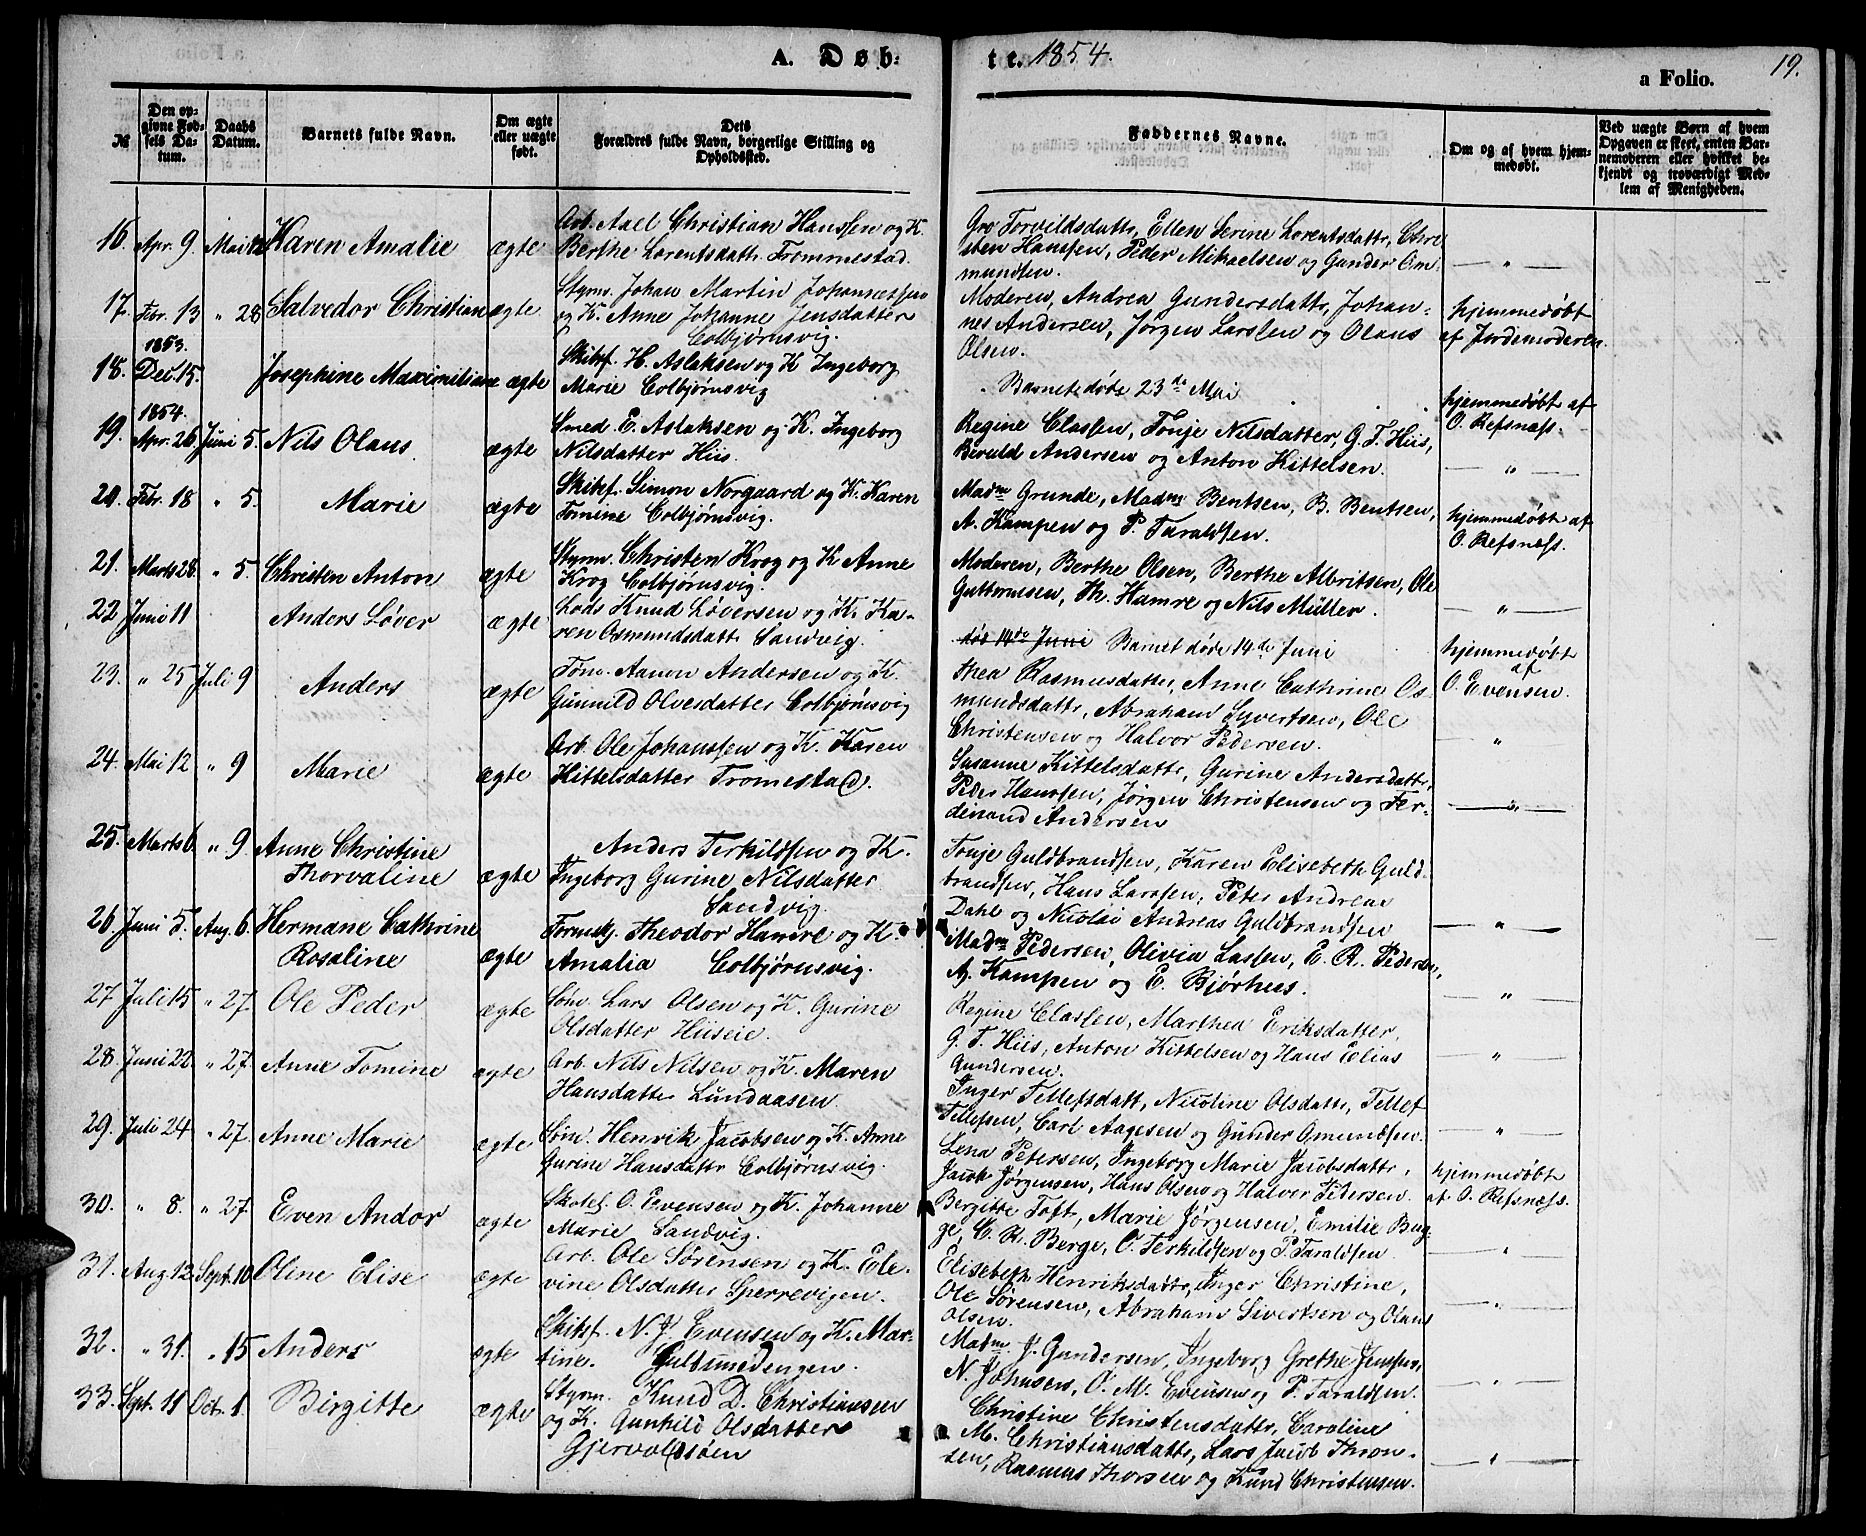 A. Døb-
te. 1854.
a Folio.
19.
№
Den op-
givne Fød-
sels Da-
tum.
Daabs
Datum.
Barnets fulde Navn.
Om ægte
eller uægte
født.
Dets
Forældres fulde Navn, borgerlige Stilling og
Opholdssted.
Faddernes Navne.
Om og af hvem hjem-
medøbt.
Ved uægte Børn af hvem
Opgaven er skeet, enten Bar-
nemoderen eller hvilket be-
kjendt og troværdigt Med-
lem af Menigheden.
16. Apr. 9. Mai Karen Amalie ægte
Arb. Axel Christian Hanssen og K.
Berthe Lorentsdattr. Trommestad.
Gro Torvildsdattr, Ellen Serine Lorentsdattr, Chri
sten Hanssen, Peder Mikaelsen og Gunder Om-
mundsen.
— " —
17. Febr. 13 " 28 Salvedor Christian ægte
Styrm. Johan Martin Johanessen
og K. Anne Johanne Jensdatter
Colbjørnsvig.
Moderen, Andrea Gundersdattr, Johan-
nes Andersen, Jørgen Larssen og Olaus
Olsen.
hjemmedøbt
af Jordemoderen.
1853.
18. Dec. 15. Josephine Maximiliane ægte
Skibsf. H. Aslaksen og K Ingeborg
Marie Colbjørnsvig
Barnet døde 23de Mai
hjemmedøbt af
O. Refsnæss.
1854.
19. Apr. 26 Juni 5. Nils Olaus ægte
Smed E. Aslaksen og K. Ingeborg
Nilsdatter Hiis.
Regine Classen, Tonje Nilsdatter, G. T. Hiis,
Beruld Andersen og Anton Kittelsen.
— " —
20. Febr. 18 " 5. Marie ægte
Skibsf. Simon Norgaard og K. Karen
Tomine Colbjørnsvig.
Madm Grunde, Madm Bentsen, B. Bentsen,
A. Kampen og P. Taraldsen.
hjemmedøbt af
O. Refsnæss.
21. Marts 28. " 5. Christen Anton ægte
Styrm. Christen Krog og K Anne
Krog Colbjørnsvig.
Moderen, Berthe Olsen, Berthe Albritsen, Ole
Guttormsen, Th. Hamre og Nils Müller.
— " —
22 Juni 11 Anders Løver ægte
Lods Knud Løversen og K. Ka-
ren Osmundsdattr Sandvig.
død 14de Juni Barnet døde 14de Juni
hjemmedøbt
af
O. Evensen.
23. " 25 Juli 9 Anders ægte
Tøm. Aanon Andersen og K.
Gunnild Olvesdatter Colbjørnsvig
Thea Rasmusdatter, Anne Cathrine Os-
mundsdattr, Abraham Syvertsen, Ole
Christensen og Halvor Pedersen.
"
24. Mai 12 " 9 Marie ægte
Arb. Ole Johanssen og K. Karen
Kittelsdatter Tromestad.
Susanne Kittelsdattr, Gurine Andersdattr,
Peder Hanssen, Jørgen Christensen og Fer-
dinand Andersen
— " —
25. Marts 6. " 9 Anne Christine
Thorvaline ægte
Anders Terkildsen og K.
Ingeborg Gurine Nilsdatter
Sandvig.
Tonje Guldbrandsen, Karen Elisabeth Guld-
brandsen, Hans Larssen, Peter Andreas
Dahl og Nicolai Andreas Guldbrandsen
— " —
26 Juni 5. Aug. 6. Hermane Cathrine
Rosaline ægte
Theodor Hamre og K.
Amalia Colbjørnsvig.
Madm Pedersen, Olivia Lassen, E. R. Pedersen,
A. Kampen og E. Bjørhus.
— " —
27 Juli 15 " 27. Ole Peder ægte
Søm. Lars Olsen og K. Gurine
Olsdatter Hiiseie.
Regine Classen, Marthea Eriksdatter,
G. T. Hiis, Anton Kittelsen og Hans Elias
Gundersen.
— " —
28. Juni 22 " 27. Anne Tomine ægte
Arb. Nils Nilsen og K. Maren
Hansdattr Lundaasen
Inger Tellefsdatt, Nicoline Olsdattr, Tellef
Tellefsen, Carl Aagesen og Gunder Omundsen.
— " —
29. Juli 24 " 27. Anne Marie ægte
Søm. Henrik Jacobsen og K. Anne
Gurine Hansdattr Colbjørnsvig.
Lena Petersen, Ingeborg Marie Jacobsdattr,
Jacob Jørgensen, Hans Olsen og Halvor Petersen.
hjemmedøbt
af O. Refsnæss.
30. " 8. " 27. Even Andor ægte
O. Evensen og K. Johanne
Marie Sandvig.
Bergitte Toft, Marie Jørgensen, Emilie Bug-
ge, C. R. Berge, O. Terkildsen og P. Taraldsen
"
31. Aug. 12 Sept. 10 Oline Elise ægte
Arb. Ole Sørensen og K. Ele-
vine Olsdatter Sperrevigen.
Elisabeth Henriksdattr, Inger Christine,
Ole Sørensen, Abraham Sivertsen og Olaus
Olsen.
— " —
32. " 31. " 15 Anders ægte
Skibsf. N. J. Evensen og K. Mar-
tine. Guldsmedengen.
Madm. J. Gundersen, Ingeborg Grethe Jenssen,
N. Johnsen, O. M. Evensen og P. Taraldsen.
"
33. Sept. 11 Oct. 1. Birgitte ægte
Styrm. Knud D. Christiansen
og K. Gunhild Olsdatter
Gjervoldsøen
Christine Christensdattr, Caroline
M. Christiansdattr, Lars Jacob Thron-
sen, Rasmus Thorsen og Knud Christensen.
— " —